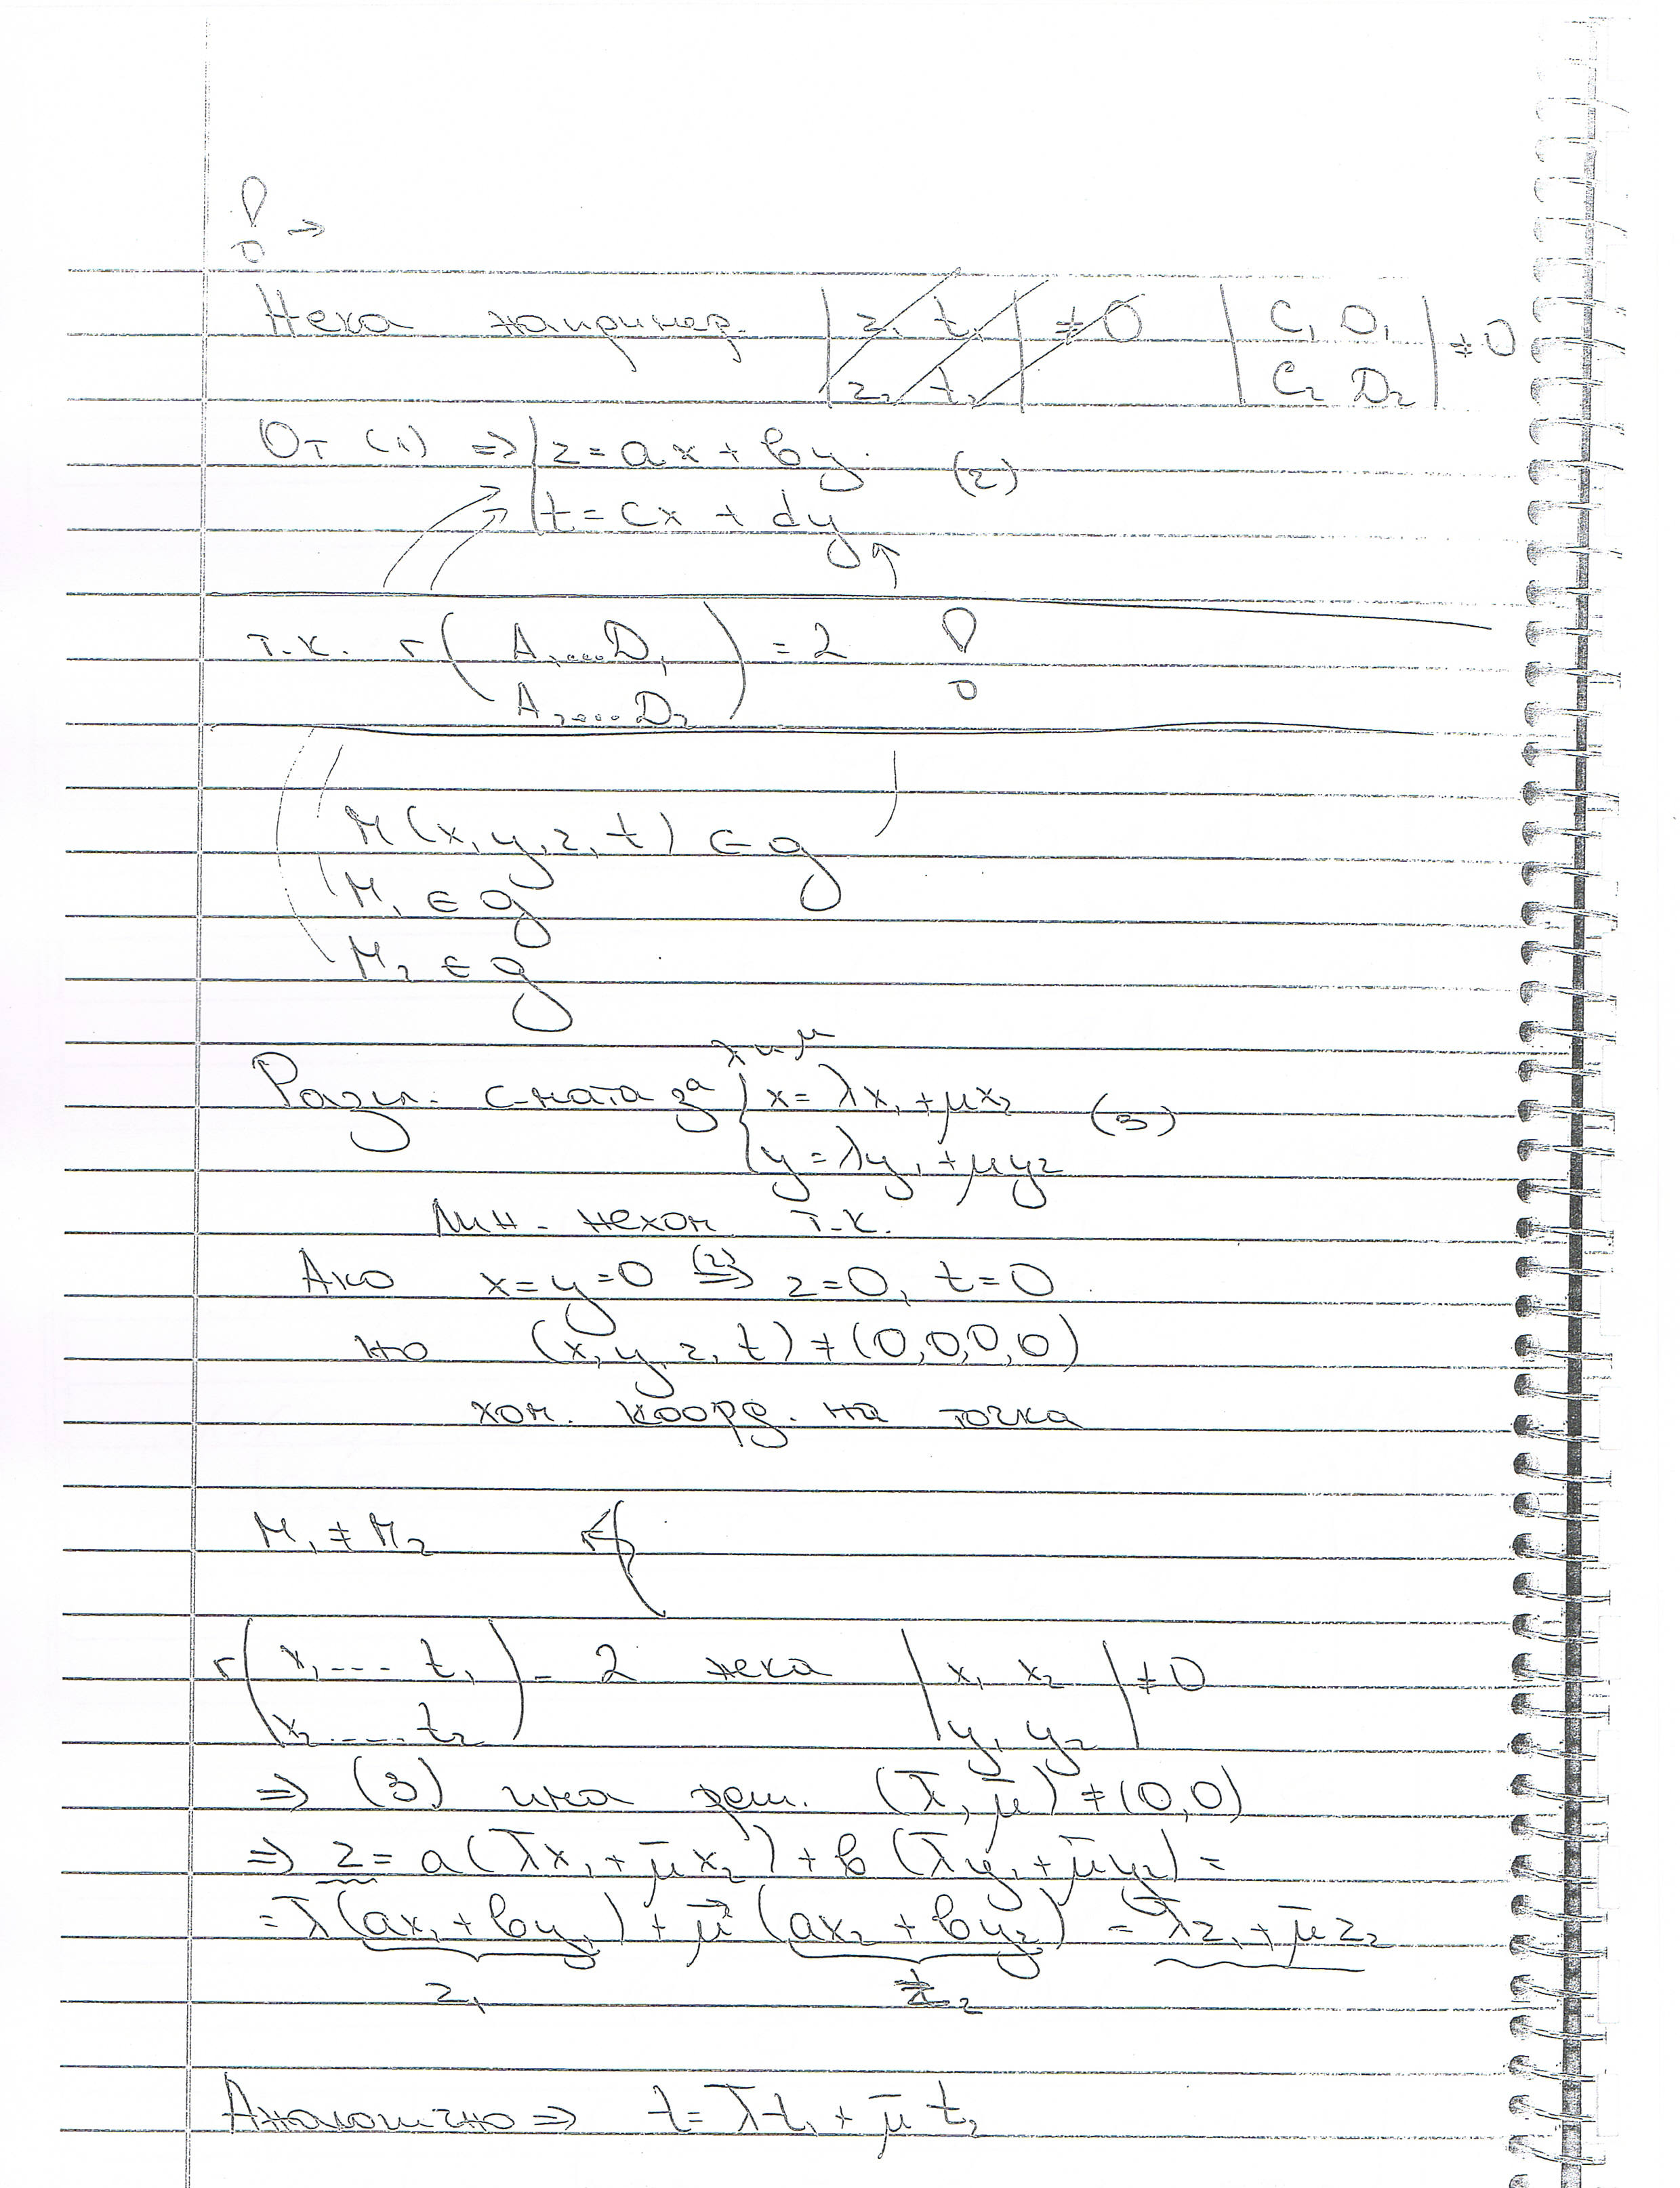 ! →
Нека например. | z₁ t₁ | ≠ 0 | C₁ D₁ | ≠ 0
| z₂ t₂ | | C₂ D₂ |
От (1) ⇒ | z = ax + by. (2)
| t = cx + dy
т.к. r ( A₁....D₁ ) = 2 !
( A₂....D₂ )
M(x, y, z, t) ∈ g
M₁ ∈ g
M₂ ∈ g
λ и μ
Разгл. с-мата за { x = λx₁ + μx₂ (3)
{ y = λy₁ + μy₂
Лин. нехом. т.к.
Ако x = y = 0 (2)⇒ z = 0, t = 0
но (x, y, z, t) ≠ (0,0,0,0)
хом. коорд. на точка
M₁ ≠ M₂ ⇐
r ( x₁ .... t₁ ) = 2 нека | x₁ x₂ | ≠ 0
( x₂ .... t₂ ) | y₁ y₂ |
⇒ (3) има реш. (λ̄, μ̄) ≠ (0,0)
⇒ z = a(λ̄x₁ + μ̄x₂) + b(λ̄y₁ + μ̄y₂) =
= λ̄(ax₁ + by₁) + μ̄(ax₂ + by₂) = λ̄z₁ + μ̄z₂
z₁ z₂
Аналогично ⇒ t = λ̄t₁ + μ̄t₂